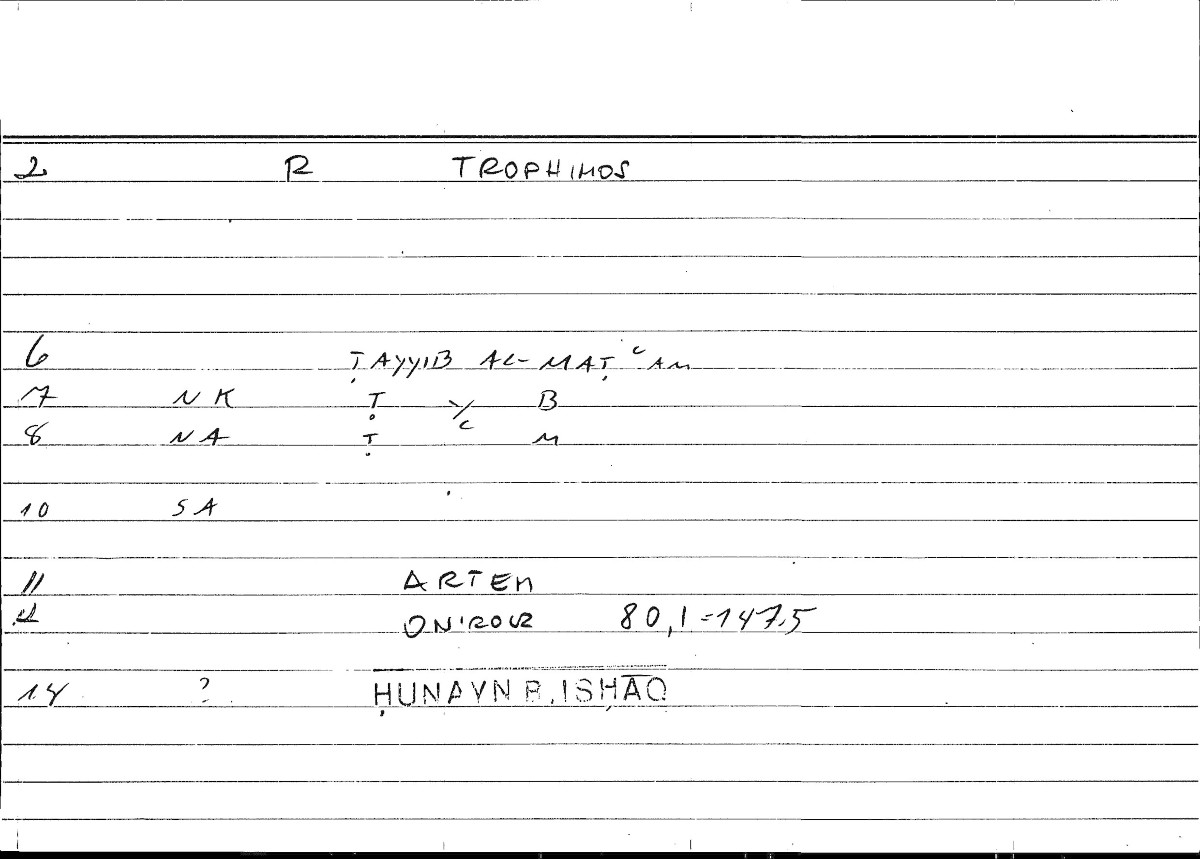 2 R TROPHIMOS
6 ṬAYYIB AL-MAṬ ᶜAM
7 NK Ṭ Y/C B
8 NA Ṭ M
10 SA
11 ARTEM
ONIROCR 80,1=147.5
14 ? ḤUNAYN B. ISḤĀQ